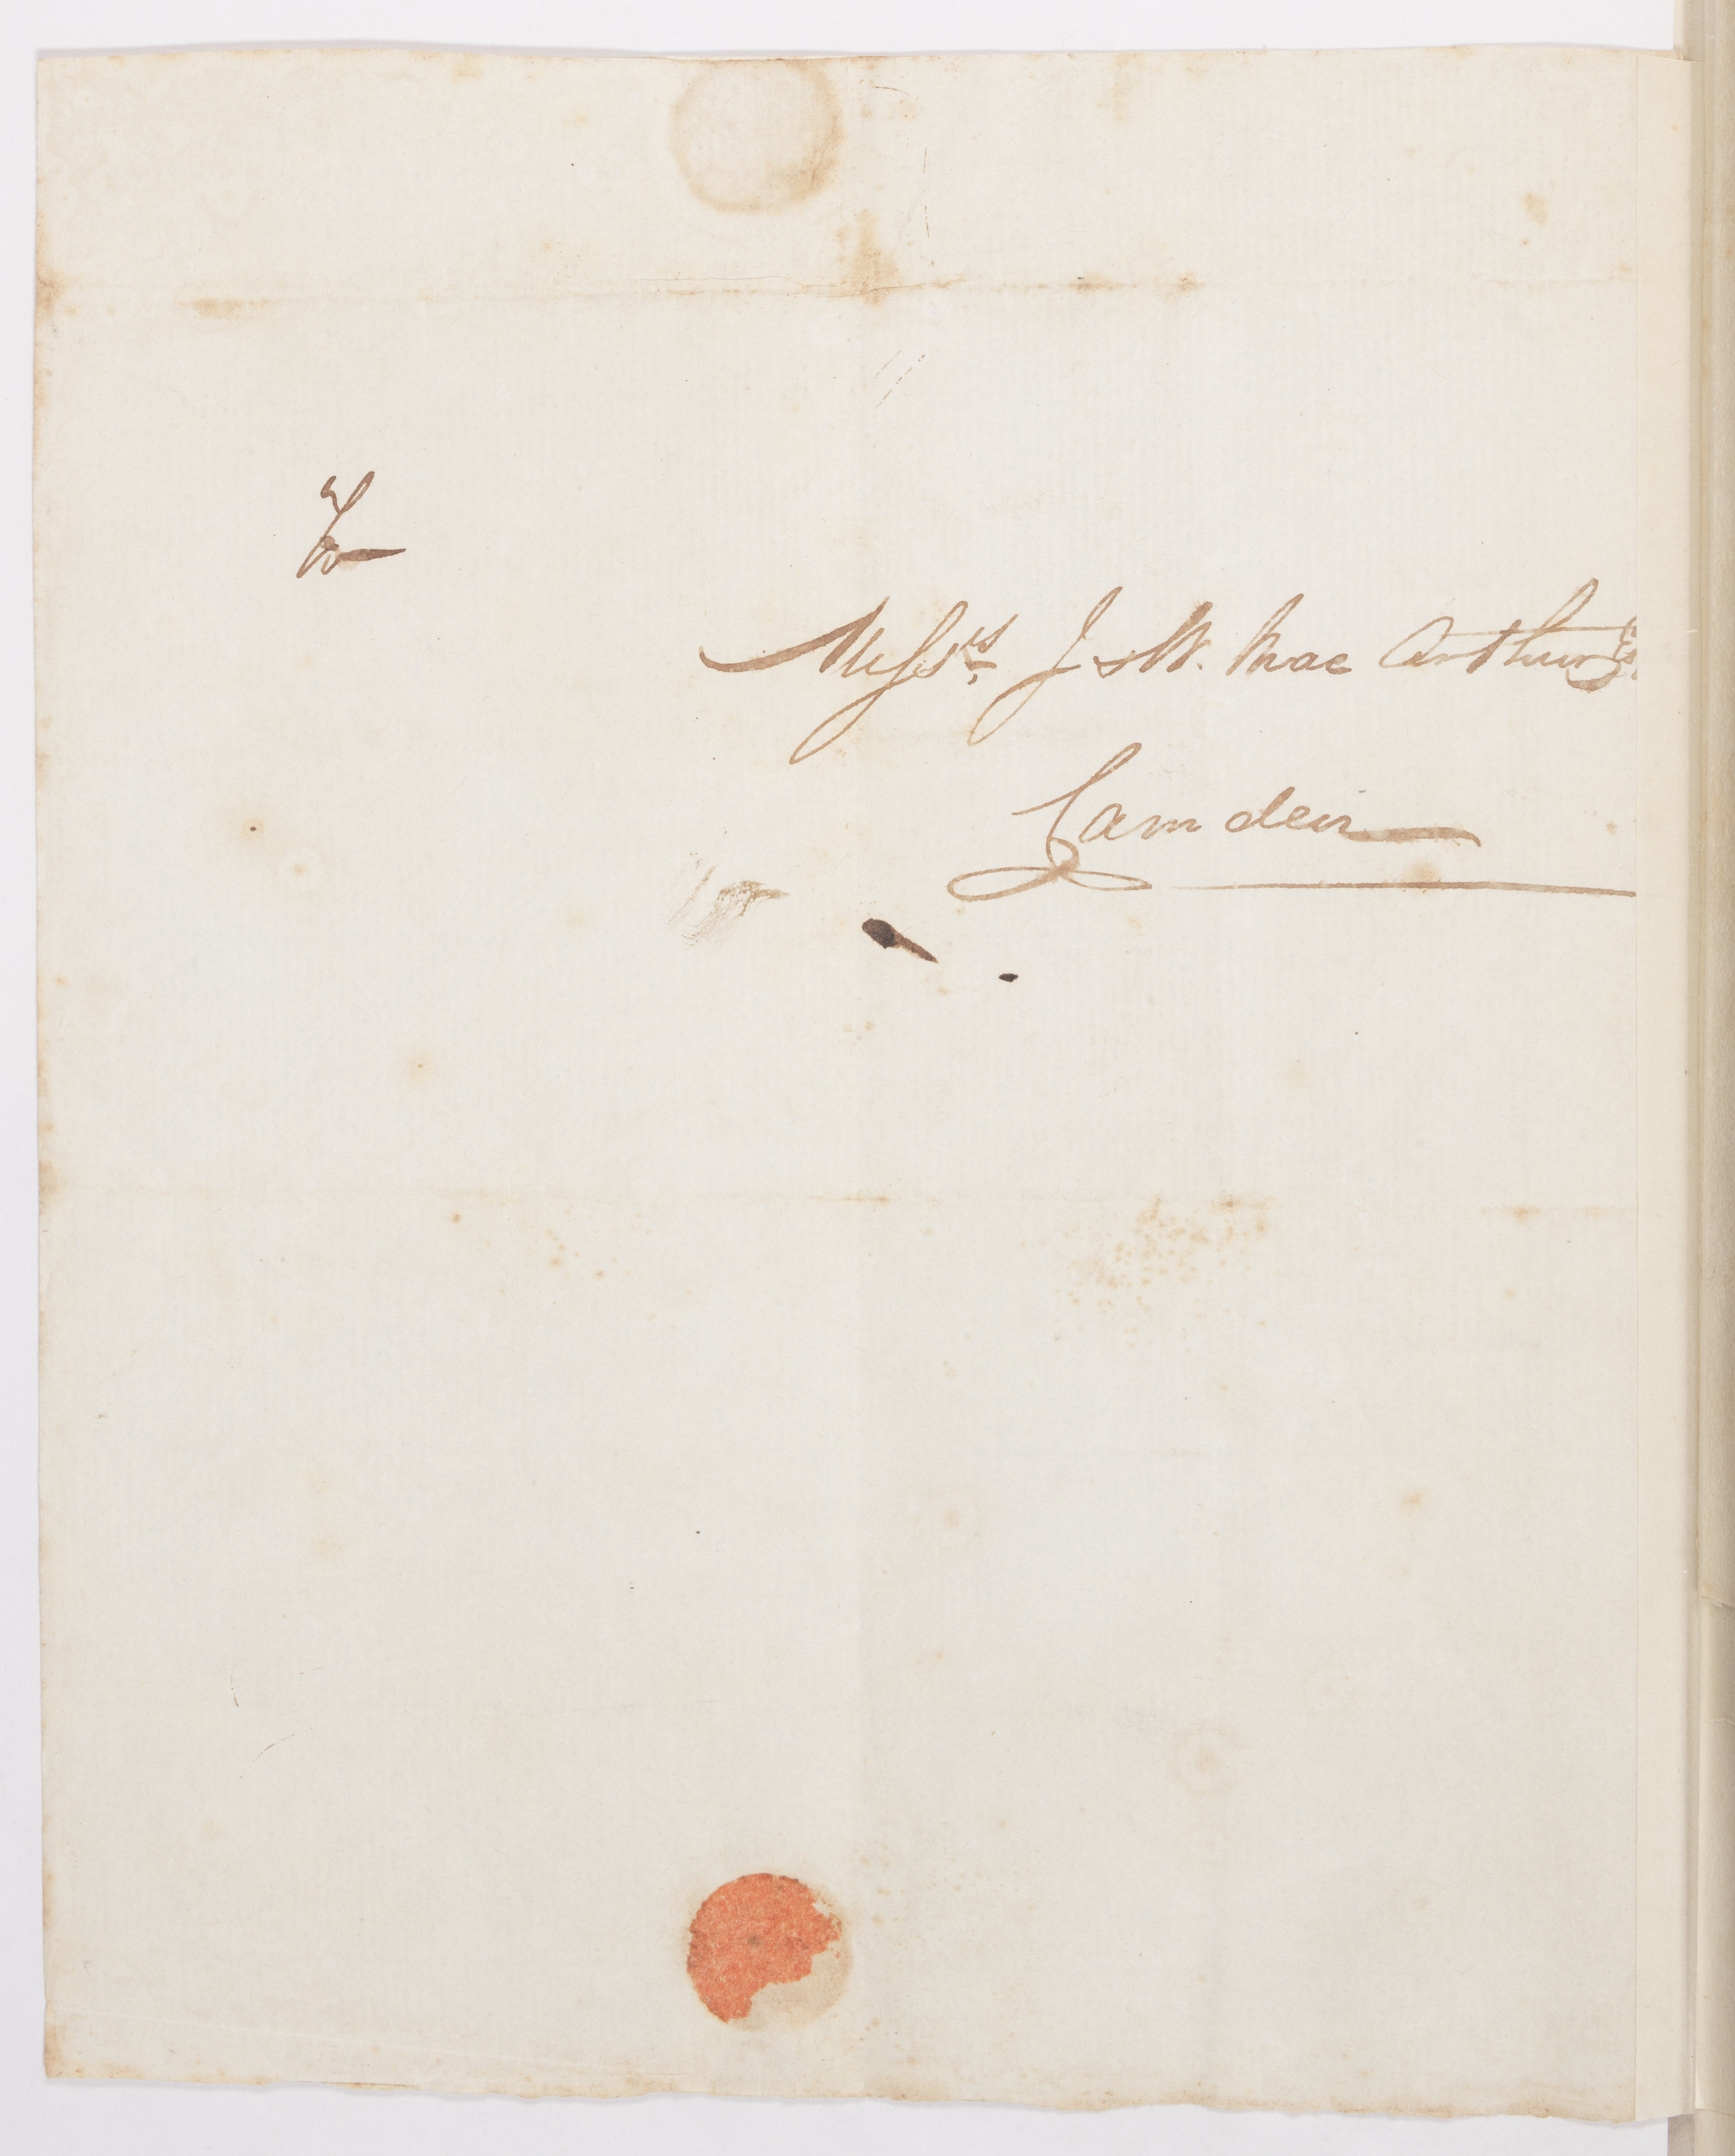 To
Messrs. J & W. Mac Arthur
Camden